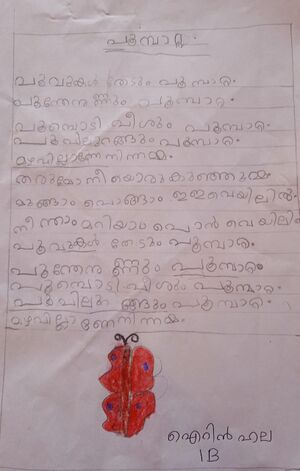 പൂമ്പാറ്റ
പൂവുകൾ തേടും പൂമ്പാറ്റ.
പൂന്തേനുണ്ണും പൂമ്പാറ്റ.
പൂമ്പൊടി വീശും പൂമ്പാറ്റ.
പൂവിലുറങ്ങും പൂമ്പാറ്റ.
മഴവില്ലാണേ നിന്നമ്മ.
തരുമോ നീയൊരു കുഞ്ഞുമ്മ
മുങ്ങാം പൊങ്ങാം ഈ വെയിലിൽ.
നീന്താം മറിയാം പൊൻ വെയിലിൽ
പൂവുകൾ തേടും പൂമ്പാറ്റ.
പൂന്തേനുണ്ണും പൂമ്പാറ്റ
പൂമ്പൊടി വീശും പൂമ്പാറ്റ.
പൂവിലുറങ്ങും പൂമ്പാറ്റ.
മഴവില്ലാണേ നിന്നമ്മ.
ഐറിൻ ഹല
1B